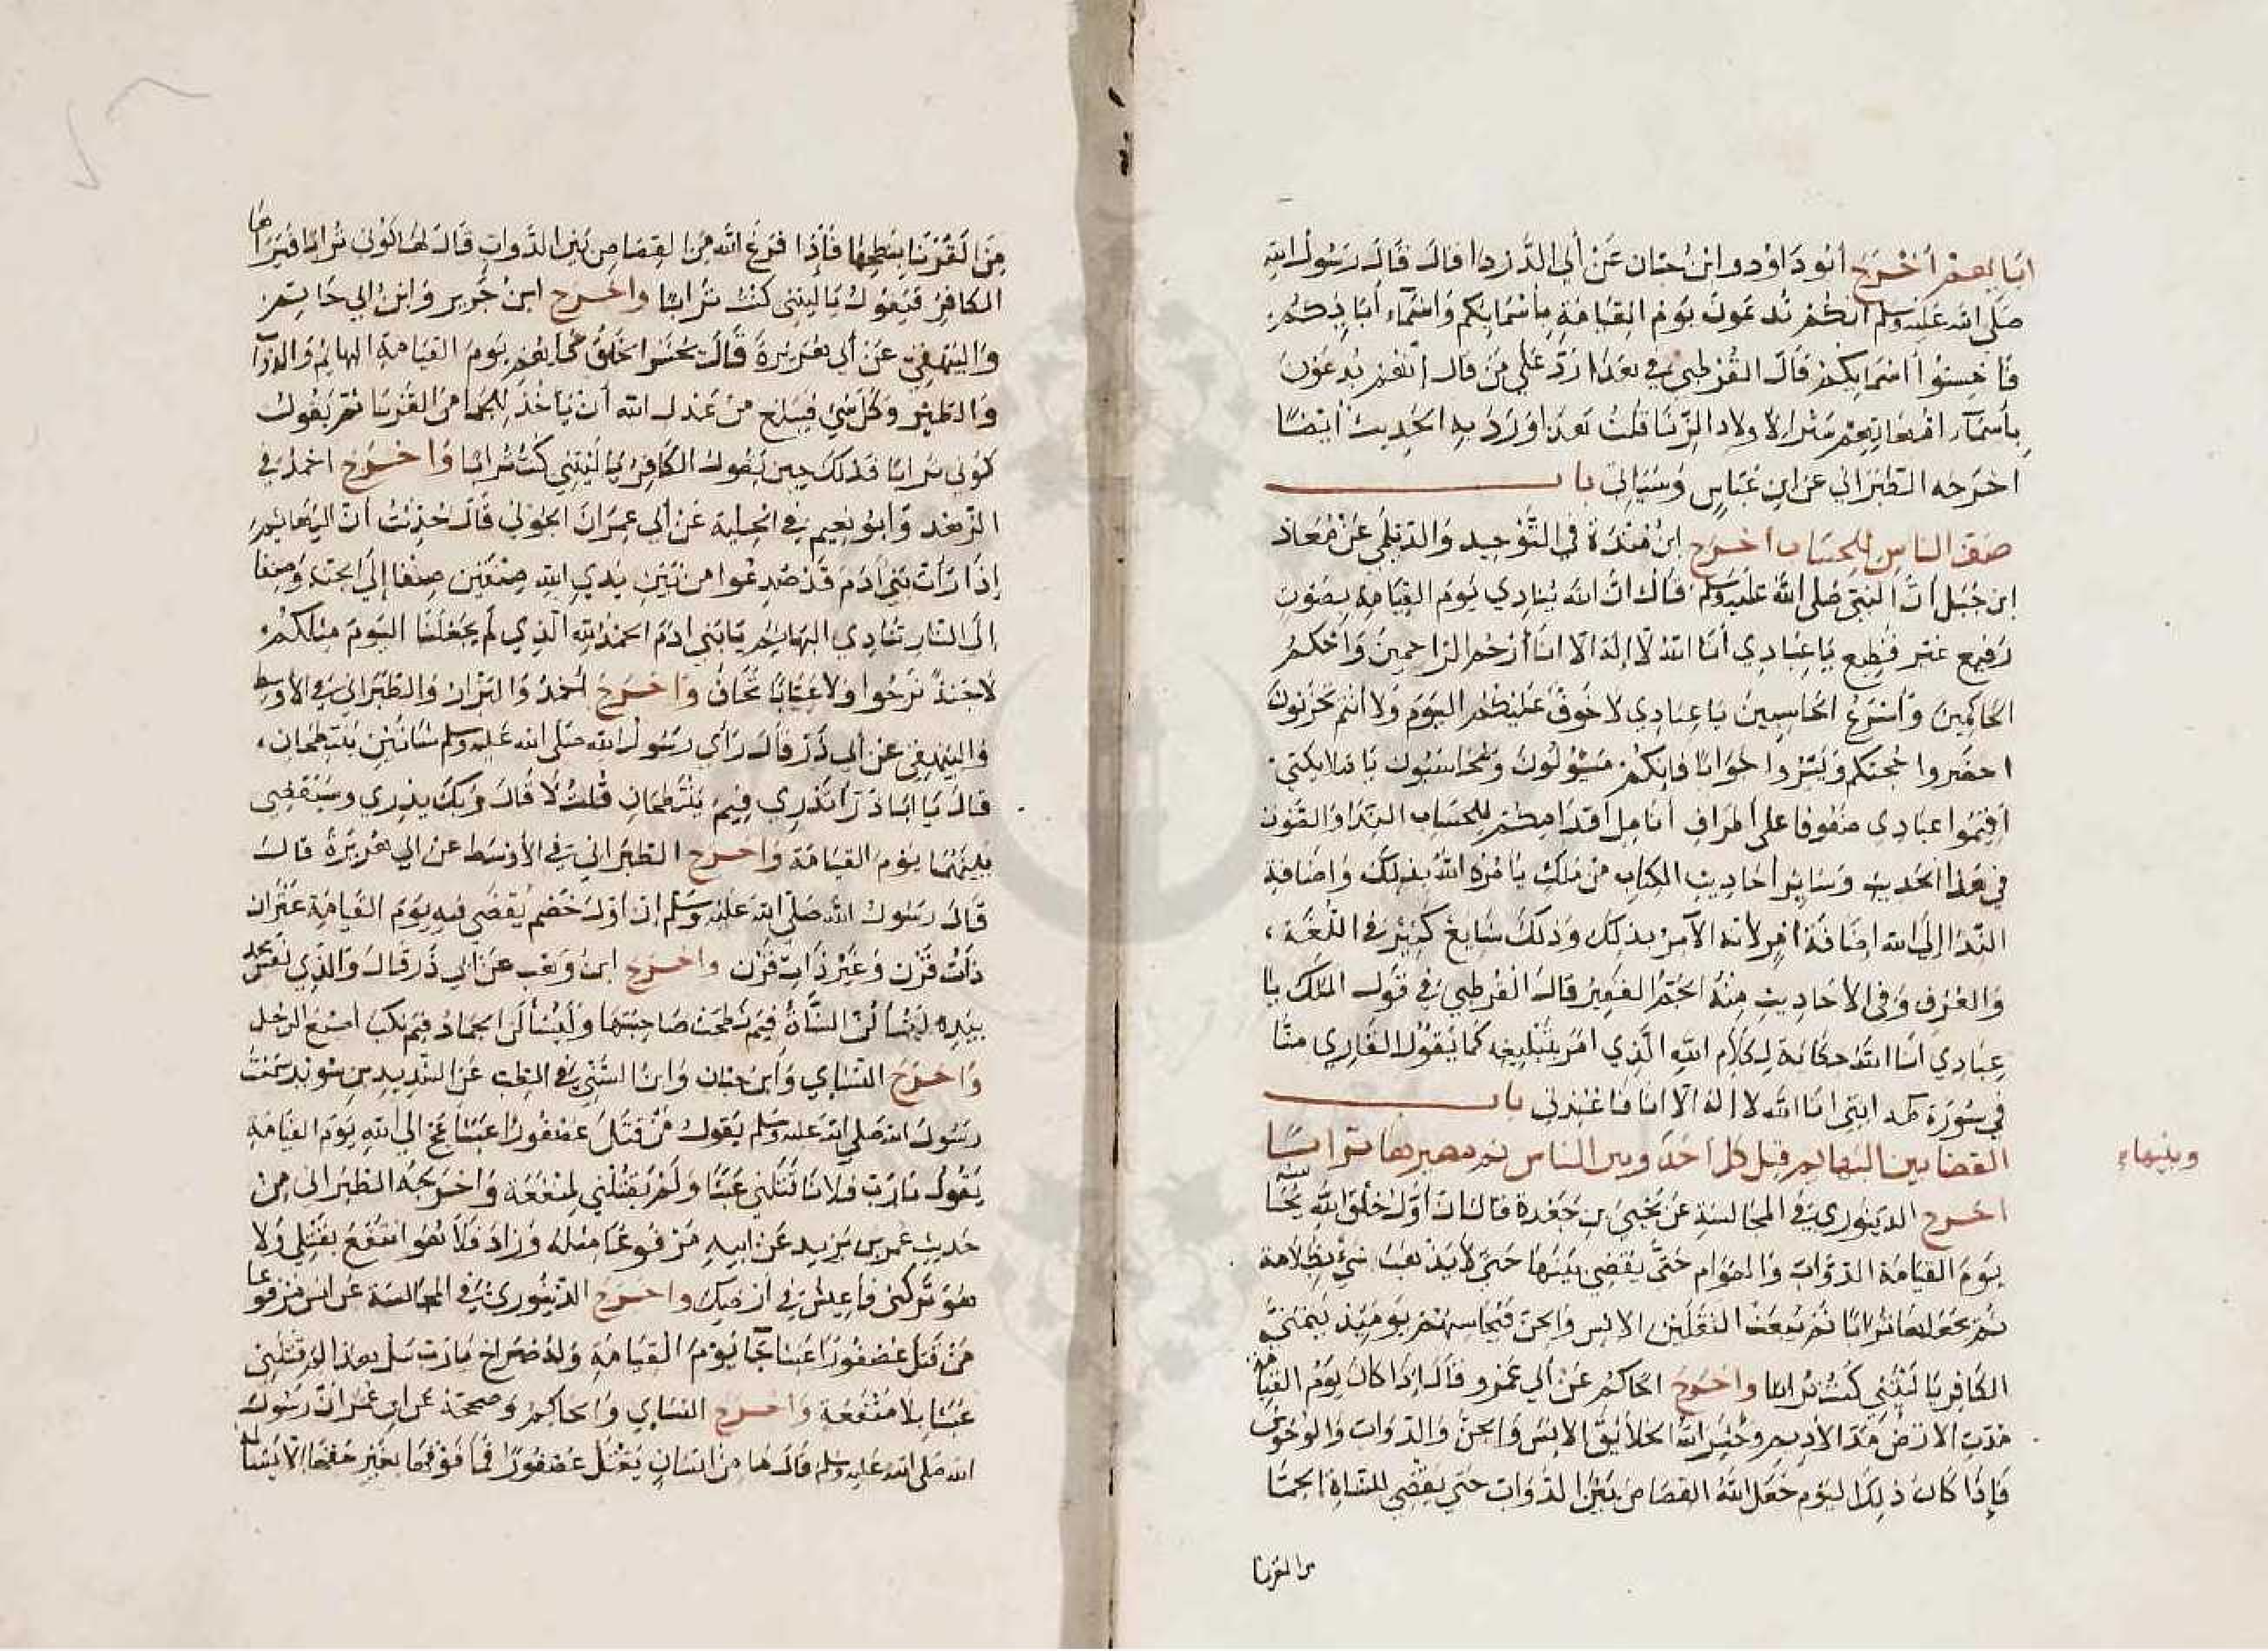 ابايهم أخرج أبو داود وابن حبان عن أبي الدرداء قال قال رسول الله
صلى الله عليه وسلم انكم تدعون يوم القيامة بأسمائكم وأسماء آبائكم
فأحسنوا أسمائكم قال القرطبي في هذا رد على من قال انهم يدعون
بأسماء أمهاتهم ستر الأولاد الزنا قلت هذا ورد به الحديث أيضا
أخرجه الطبراني عن ابن عباس وسيأتي باب
صف الناس للحساب أخرج ابن منده في التوحيد والديلمي عن معاذ
ابن جبل أن النبي صلى الله عليه وسلم قال ان الله ينادي يوم القيامة بصوت
رفيع غير فظيع يا عبادي أنا الله لا اله الا انا أرحم الراحمين وأحكم
الحاكمين وأسرع الحاسبين يا عبادي لا خوف عليكم اليوم ولا أنتم تحزنون
احضروا حجتكم ويسروا جوابا فإنكم مسؤلون ومحاسبون يا ملائكتي
أقيموا عبادي صفوفا على أطراف أنامل أقدامهم للحساب الندا والصوت
في هذا الحديث وسائر أحاديث الكتاب من ملك يأمره الله بذلك واضافة
الندا إلى الله اضافة أمر لأنه الآمر بذلك وذلك سايغ كثير في اللغة ،
والعرف وفي الأحاديث منه الجم الغفير قال القرطبي في قول الملك يا
عبادي انا الله حكاية لكلام الله الذي أمر بتبليغه كما يقول القاري منا
في سورة طه انني انا الله لا اله الا انا فاعبدني باب
القضا بين البهايم قبل كل احد وبين الناس ثم مصيرها ترابا
وبينها
أخرج الدينوري في المجالسة عن يحيى بن جعدة قال ان أول خلق الله يحاسب
يوم القيامة الدواب والهوام حتى يقضى بينها حتى لا يذهب شيء بظلامة
ثم يجعلها ترابا ثم يبعث الثقلين الانس والجن فيحاسبهم يومئذ يتمنى
الكافر يا ليتني كنت ترابا وأخرج الحاكم عن أبي عمرو قال إذا كان يوم القيامة
مدت الارض مد الأديم وحشر الله الخلائق الانس والجن والدواب والوحوش
فإذا كان ذلك اليوم جعل الله القصاص بين الدواب حتى يقضي للشاة الجما
من القرنا
من القرنا بنطحها فإذا فرغ الله من القصاص بين الدواب قال لها كوني ترابا فيراها
الكافر فيقول يا ليتني كنت ترابا وأخرج ابن جرير وابن أبي حاتم
والبيهقي عن أبي هريرة قال يحشر الخلق كلهم يوم القيامة البهايم والدواب
والطير وكل شيء فيبلغ من عدل الله أن يأخذ للجما من القرنا ثم يقول
كوني ترابا فذلك حين يقول الكافر يا ليتني كنت ترابا وأخرج احمد في
الزهد وأبو نعيم في الحلية عن أبي عمران الجوني قال حدثت أن البهايم
إذا رأت بني آدم قد صدعوا من بين يدي الله صنفين صنفا إلى الجنة وصنفا
إلى النار تنادي البهايم يا بني آدم الحمد لله الذي لم يجعلنا اليوم مثلكم
لا جنة نرجوا ولا عقابا نخاف وأخرج أحمد والبزار والطبراني في الأوسط
والبيهقي عن أبي ذر قال رأى رسول الله صلى الله عليه وسلم شاتين ينتطحان ،
قال يا ابا ذر أتدري فيم ينتطحان قلت لا قال وربك يدري وسيقضي
بينهما يوم القيامة وأخرج الطبراني في الأوسط عن أبي هريرة قال
قال رسول الله صلى الله عليه وسلم ان اول خصم يقضى فيه يوم القيامة عنزان
ذات قرن وغير ذات قرن وأخرج ابن وهب عن أبي ذر قال والذي نفس محمد
بيده لتسألن الشاة فيم نطحت صاحبتها وليسألن الجماد فيم نكب اصبع الرجل
وأخرج النسائي وابن حبان وابن السني في الطب عن الشديد بن سويد سمعت
رسول الله صلى الله عليه وسلم يقول من قتل عصفورا عبثا عج إلى الله يوم القيامة
يقول يا رب فلانا قتلني عبثا ولم يقتلني لمنفعة وأخرجه الطبراني من
حديث عمر بن يزيد عن ابيه مرفوعا مثله وزاد فلا هو انتفع بقتلي ولا
هو تركني فأعيش في أرضك وأخرج الدينوري في المجالسة عن انس مرفوعا
من قتل عصفورا عبثا جا يوم القيامة وله صراخ يا رب سل هذا لم قتلني
عبثا بلا منفعة وأخرج النسائي والحاكم وصححه عن ابن عمر ان رسول
الله صلى الله عليه وسلم قال ما من انسان يقتل عصفورا فما فوقها بغير حقها الا يسأله